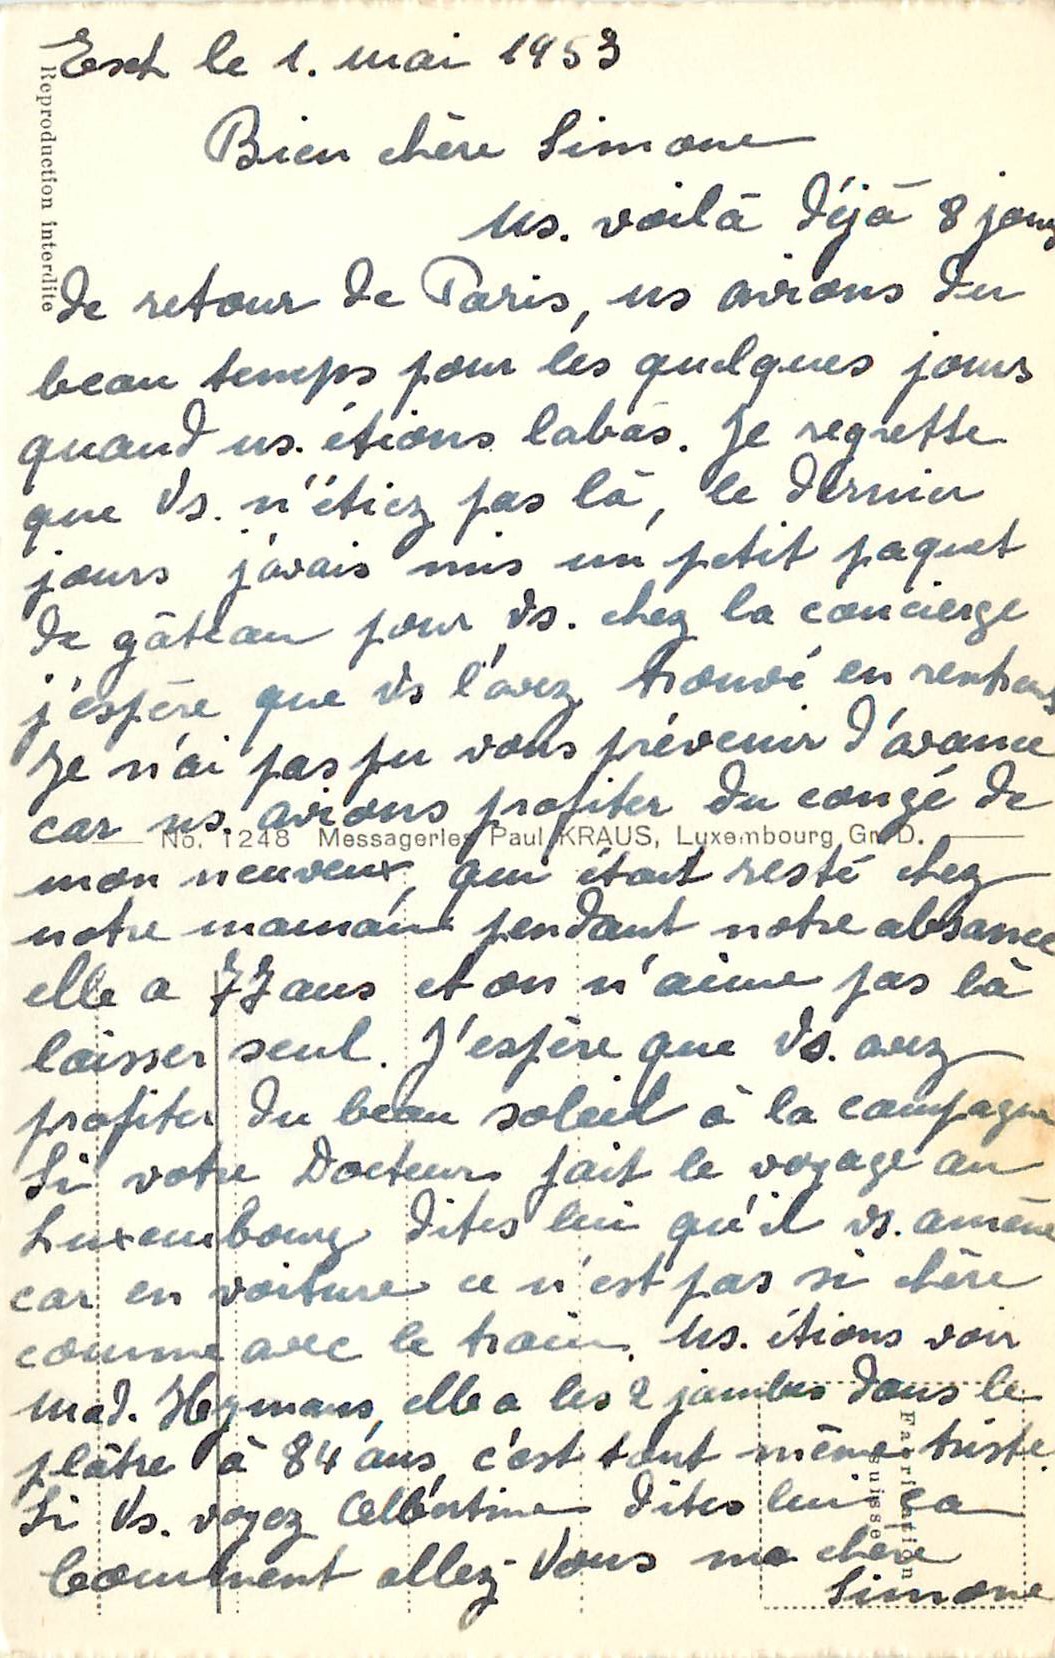 Esch le 1. mai 1953
Bien chère Simone
Ns. voilà déjà 8 jours
de retour de Paris, ns avions du
beau temps pour les quelques jours
quand ns. étions labás. Je regrette
que Vs. n'étiez pas là, le dernier
jours j'avais mis un petit paquet
de gâteau pour Vs. chez la concierge
j'espère que Vs l'avez trouvé en rentrant
Je n'ai pas pu vous prévenir d'avance
car ns. avions profiter du congé de
mon neuveux, qui était resté chez
notre maman pendant notre absance
elle a 77 ans et on n'aime pas là
laisser seul. J'espère que Vs. avez
profiter du beau soleil à la campagne
Si votre Docteur fait le voyage au
Luxembourg dites lui qu'il vs. amène
car en voiture ce n'est pas si chère
comme avec le train. Ns. étions voir
Mad. Heymans, elle a les 2 jambes dans le
plâtre à 84 ans, c'est tout même triste.
Si Vs. voyez Albertine dites lui ça
Comment allez-Vous ma chère
Simone
Reproduction interdite
No. 1248 Messageries Paul KRAUS, Luxembourg Gr. D.
Fabrication
suisse